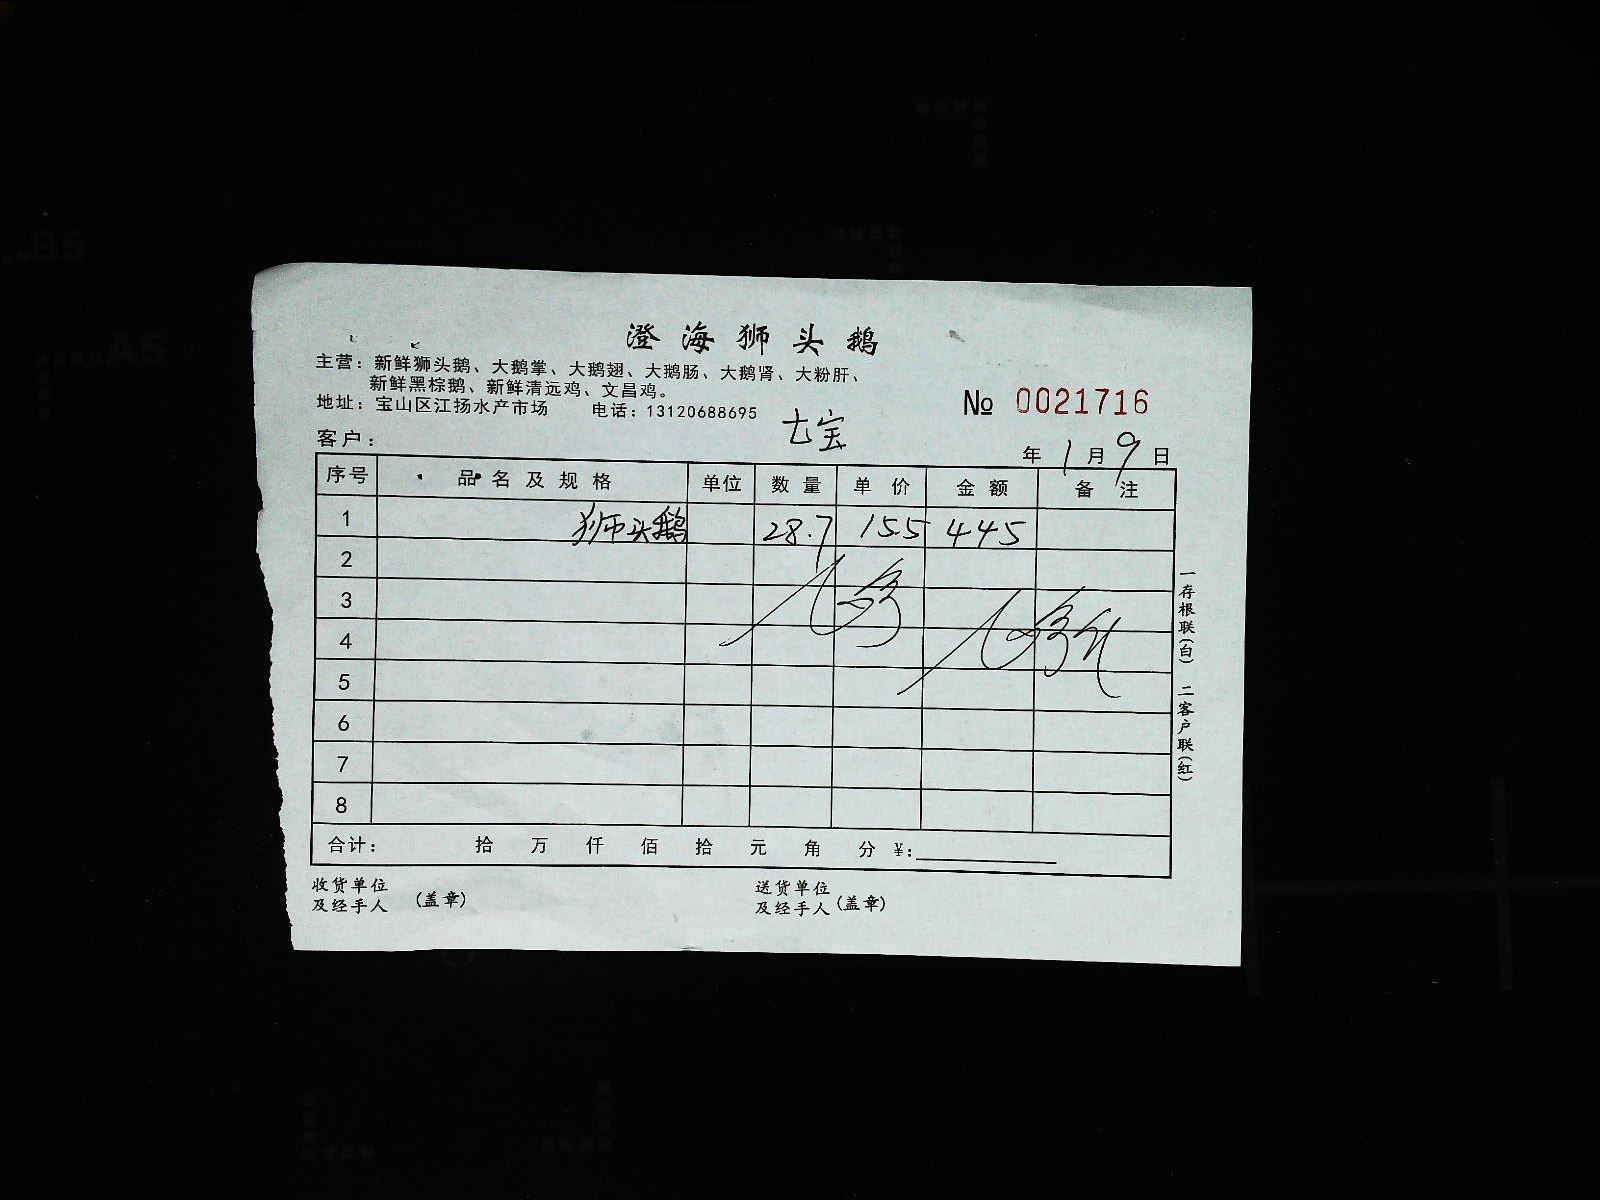 澄海狮头鹅
主营：新鲜狮头鹅、大鹅掌、大鹅翅、大鹅肠、大鹅肾、大粉肝、
新鲜黑棕鹅、新鲜清远鸡、文昌鸡。
地址：宝山区江扬水产市场 电话：13120688695
№ 0021716
客户： 七宝
年 1 月 9 日
序号 品名及规格 单位 数量 单价 金额 备注
1 狮头鹅 28.7 15.5 445
2
3
4
5
6
7
8
合计： 拾 万 仟 佰 拾 元 角 分 ¥:
收货单位
及经手人 (盖章)
送货单位
及经手人 (盖章)
一存根联(白) 二客户联(红)
B5
A5